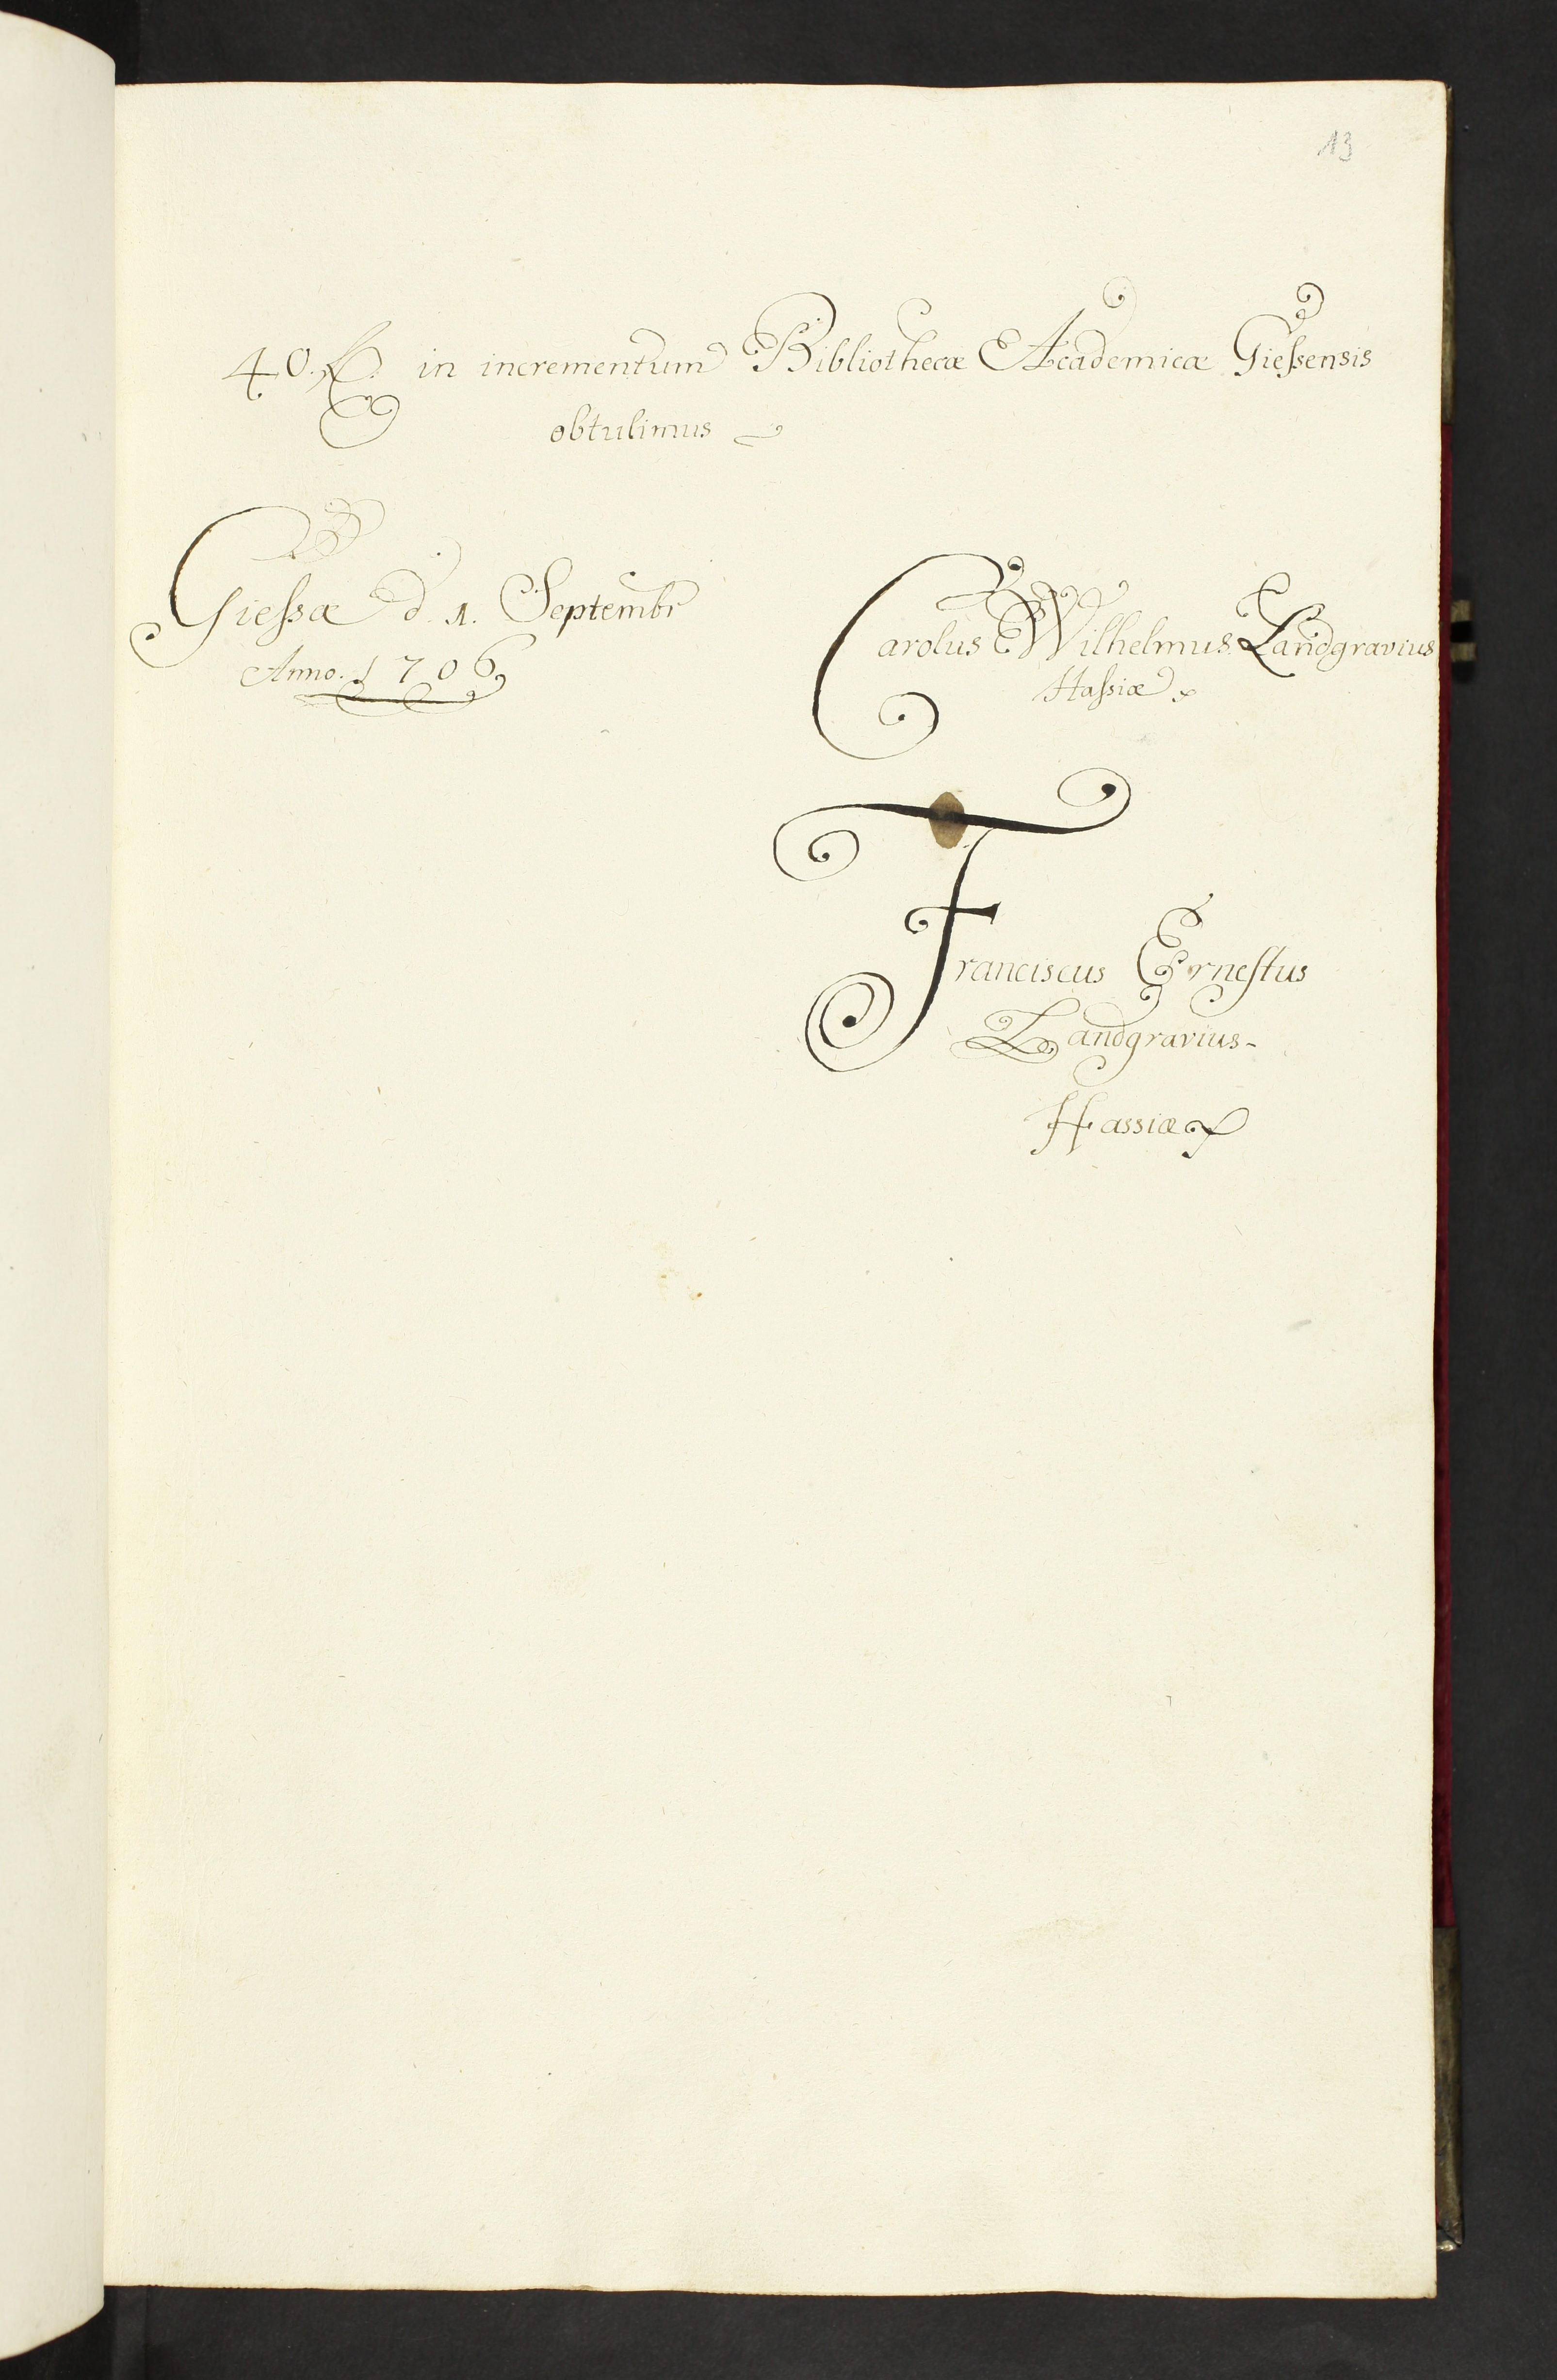 13
40. in incrementum Bibliothecæ Academicæ Gießensis
obtulimus
Gießæ d. 1. Septembr
Anno. 1706
Carolus Wilhelmus Landgravius
Haßiæ
Franciscus Erneſtus
Landgravius
Hassiæ